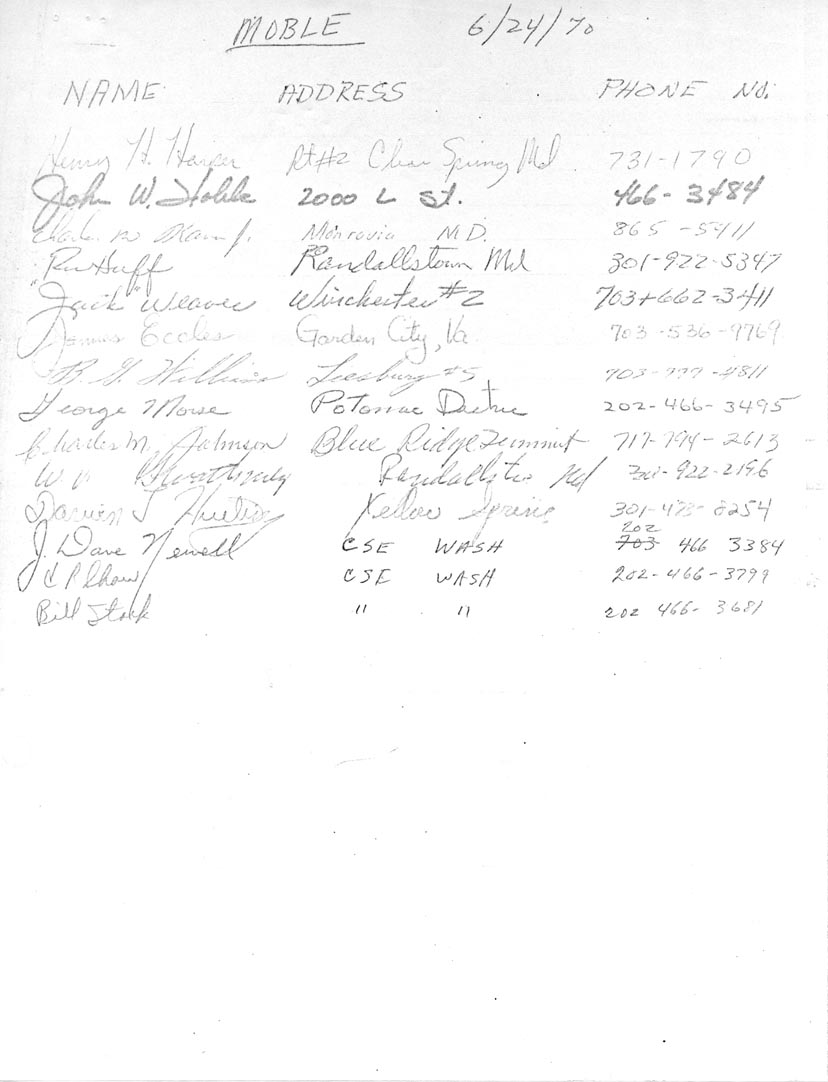 MOBLE 6/24/70
NAME ADDRESS PHONE No.
Henry H. Harper Rt #2 Clear Spring Md. 731-1790
John W. 2000 L St. 466-3484
Monrovia MD. 865-5411
Huff Randallstown Md 301-922-5347
"Jack" Weaver Winchester #2 703+662-3411
James Eccles Garden City, Va. 703-536-9769
B. G. Williams Leesburg #5 703-777-4811
George Morse Potomac 202-466-3495
Charles M. Johnson Blue Ridge Summit 717-794-2613
W Md 301-922-2196
J Yellow Spring 301-473-8254
J. Dave Newell CSE WASH 703 202 466 3384
CSE WASH 202-466-3799
Bill Stork " " 202 466-3681